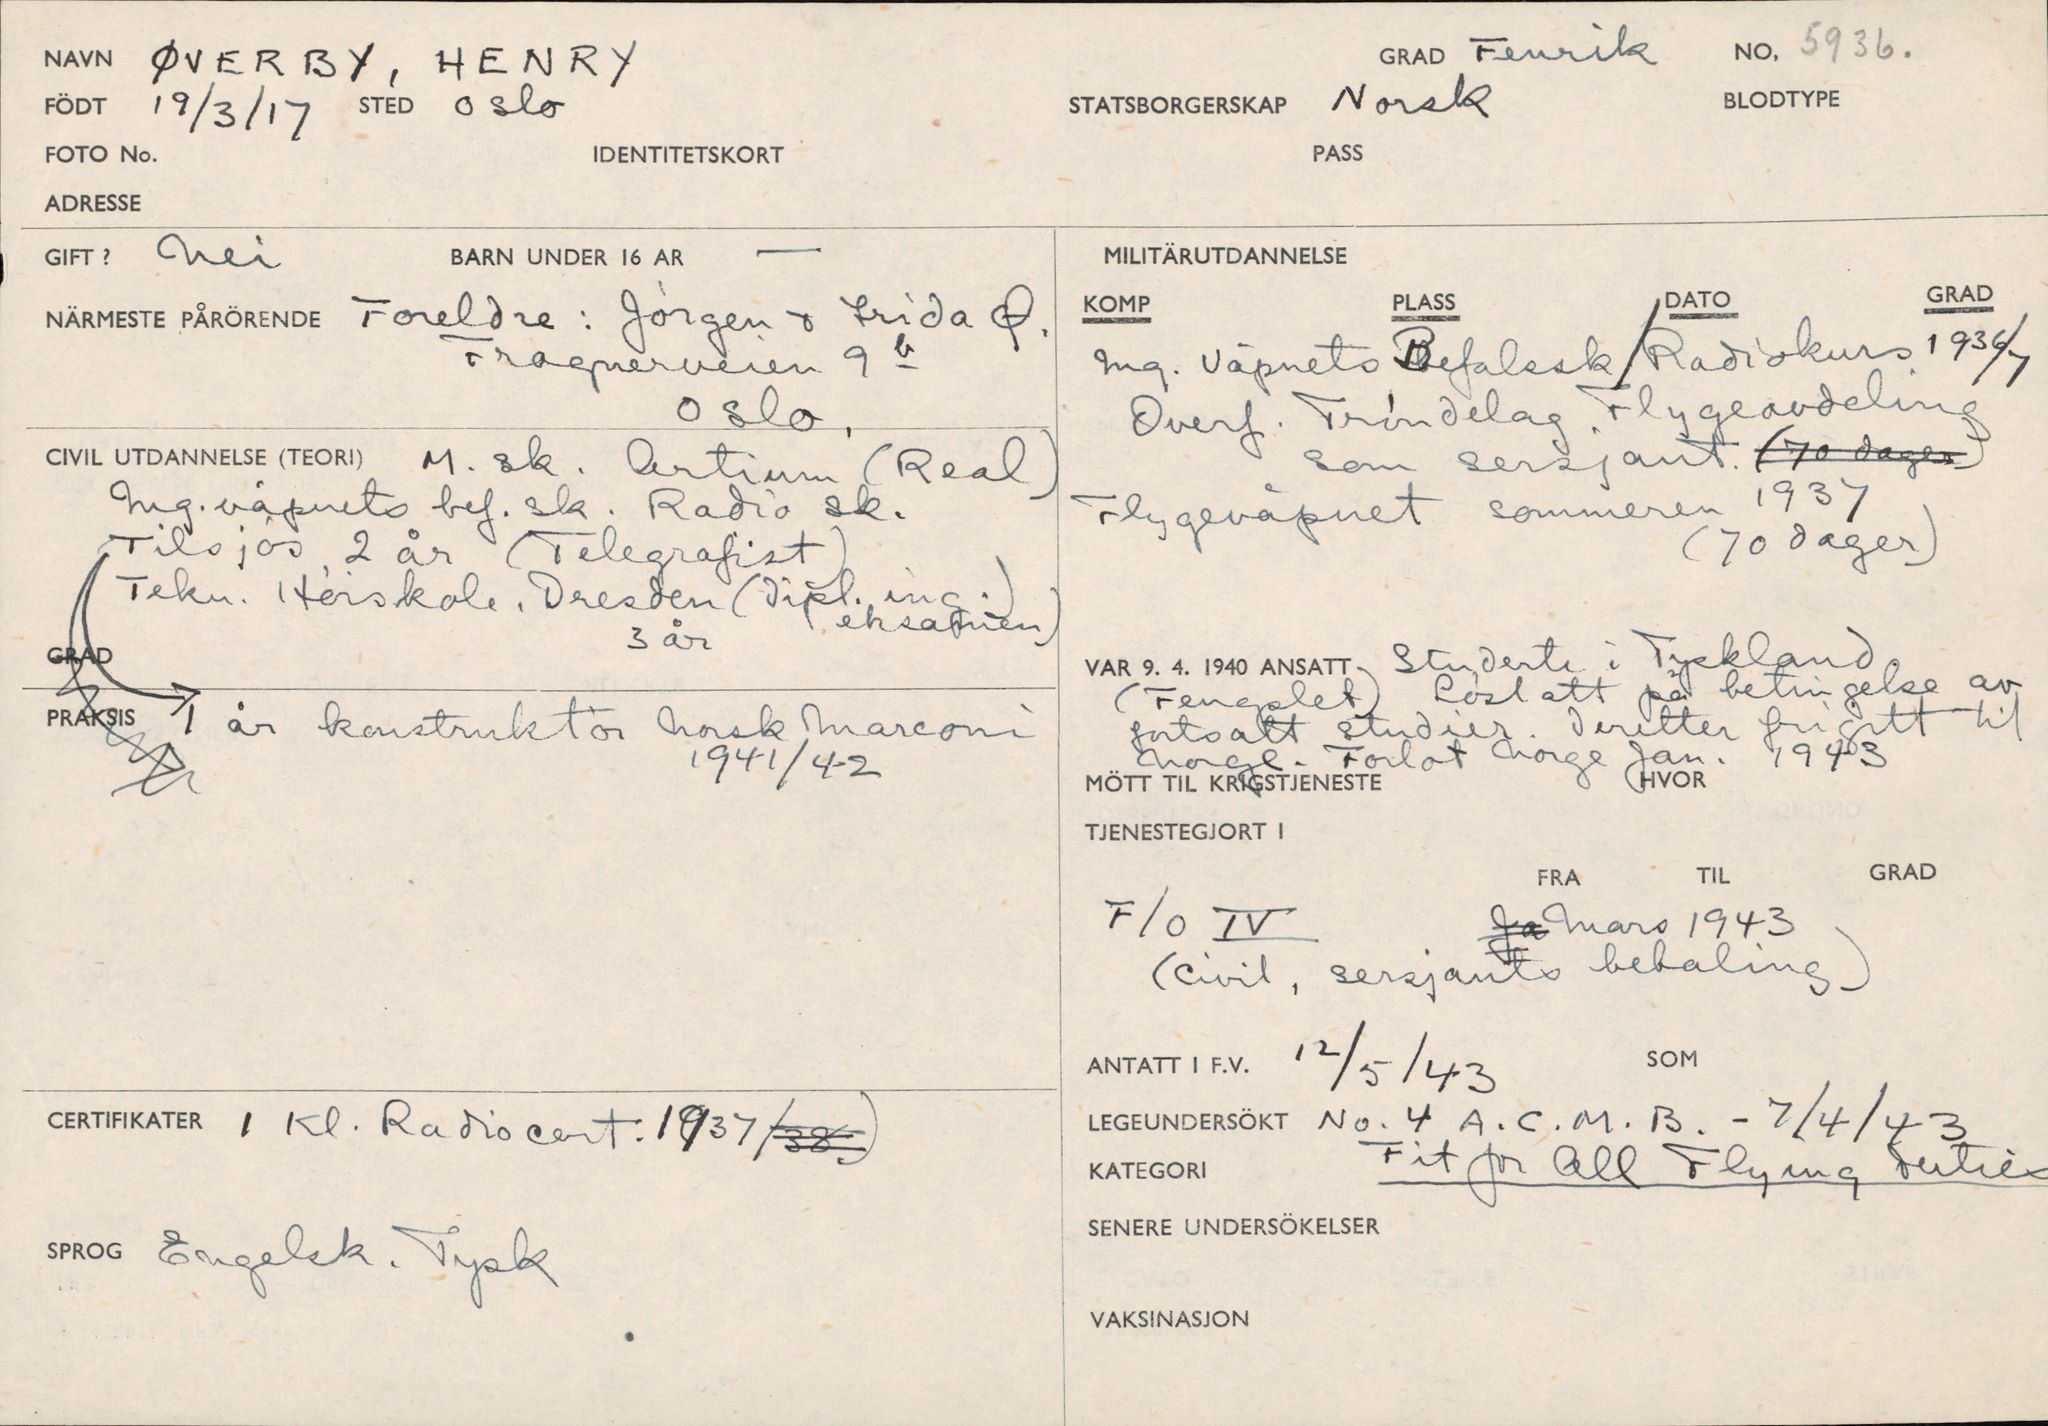 NAVN ØVERBY, HENRY GRAD Fenrik NO. 5936.
FÖDT 19/3/17 STED Oslo STATSBORGERSKAP Norsk BLODTYPE
FOTO No. IDENTITETSKORT PASS
ADRESSE
GIFT ? Nei BARN UNDER 16 AR —
NÄRMESTE PÅRÖRENDE Foreldre: Jörgen & Frida Ø.
Frognerveien 9 b
Oslo.
CIVIL UTDANNELSE (TEORI) M. sk. Artium (Real)
Ing. våpnets bef. sk. Radio sk.
Tilsjös 2 år (Telegrafist)
Tekn. Höiskole. Dresden (Dipl. ing.
eksamen)
3 år
GRAD
PRAKSIS 1 år konstruktör Norsk Marconi
1941/42
CERTIFIKATER 1 Kl. Radiocert. 1937/38)
SPROG Engelsk. Tysk
MILITÄRUTDANNELSE
KOMP PLASS DATO GRAD
Ing. våpnets Befalssk/Radiokurs 1936/7
Overf. Tröndelag Flygeavdeling
som sersjant. (70 dager)
Flygevåpnet sommeren 1937
(70 dager)
VAR 9. 4. 1940 ANSATT Student i Tyskland
(Fengslet) Löslatt på betingelse av
fortsatt studier. Deretter frigitt til
Norge. Forlot Norge Jan. 1943
MÖTT TIL KRIGSTJENESTE HVOR
TJENESTEGJORT I
FRA TIL GRAD
F/O IV Ja Mars 1943
(Civil, sersjants betaling)
ANTATT I F.V. 12/5/43 SOM
LEGEUNDERSÖKT No. 4 A.C.M.B. - 7/4/43
KATEGORI Fit for All Flying Duties
SENERE UNDERSÖKELSER
VAKSINASJON